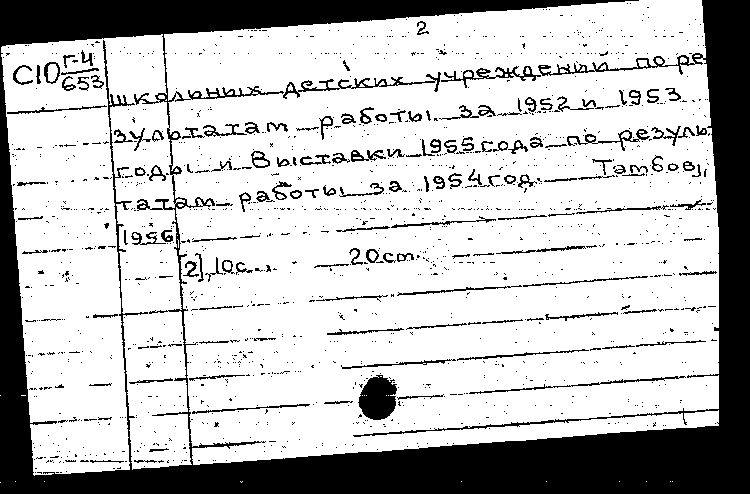 2
С10 Г-4
653
школьных детских учреждений по ре-
зультатам работы за 1952 и 1953
годы и Выставки 1955 года по резуль-
татам работы за 1954 год. Тамбов,
[1956]
[2], 10с., 20 см.